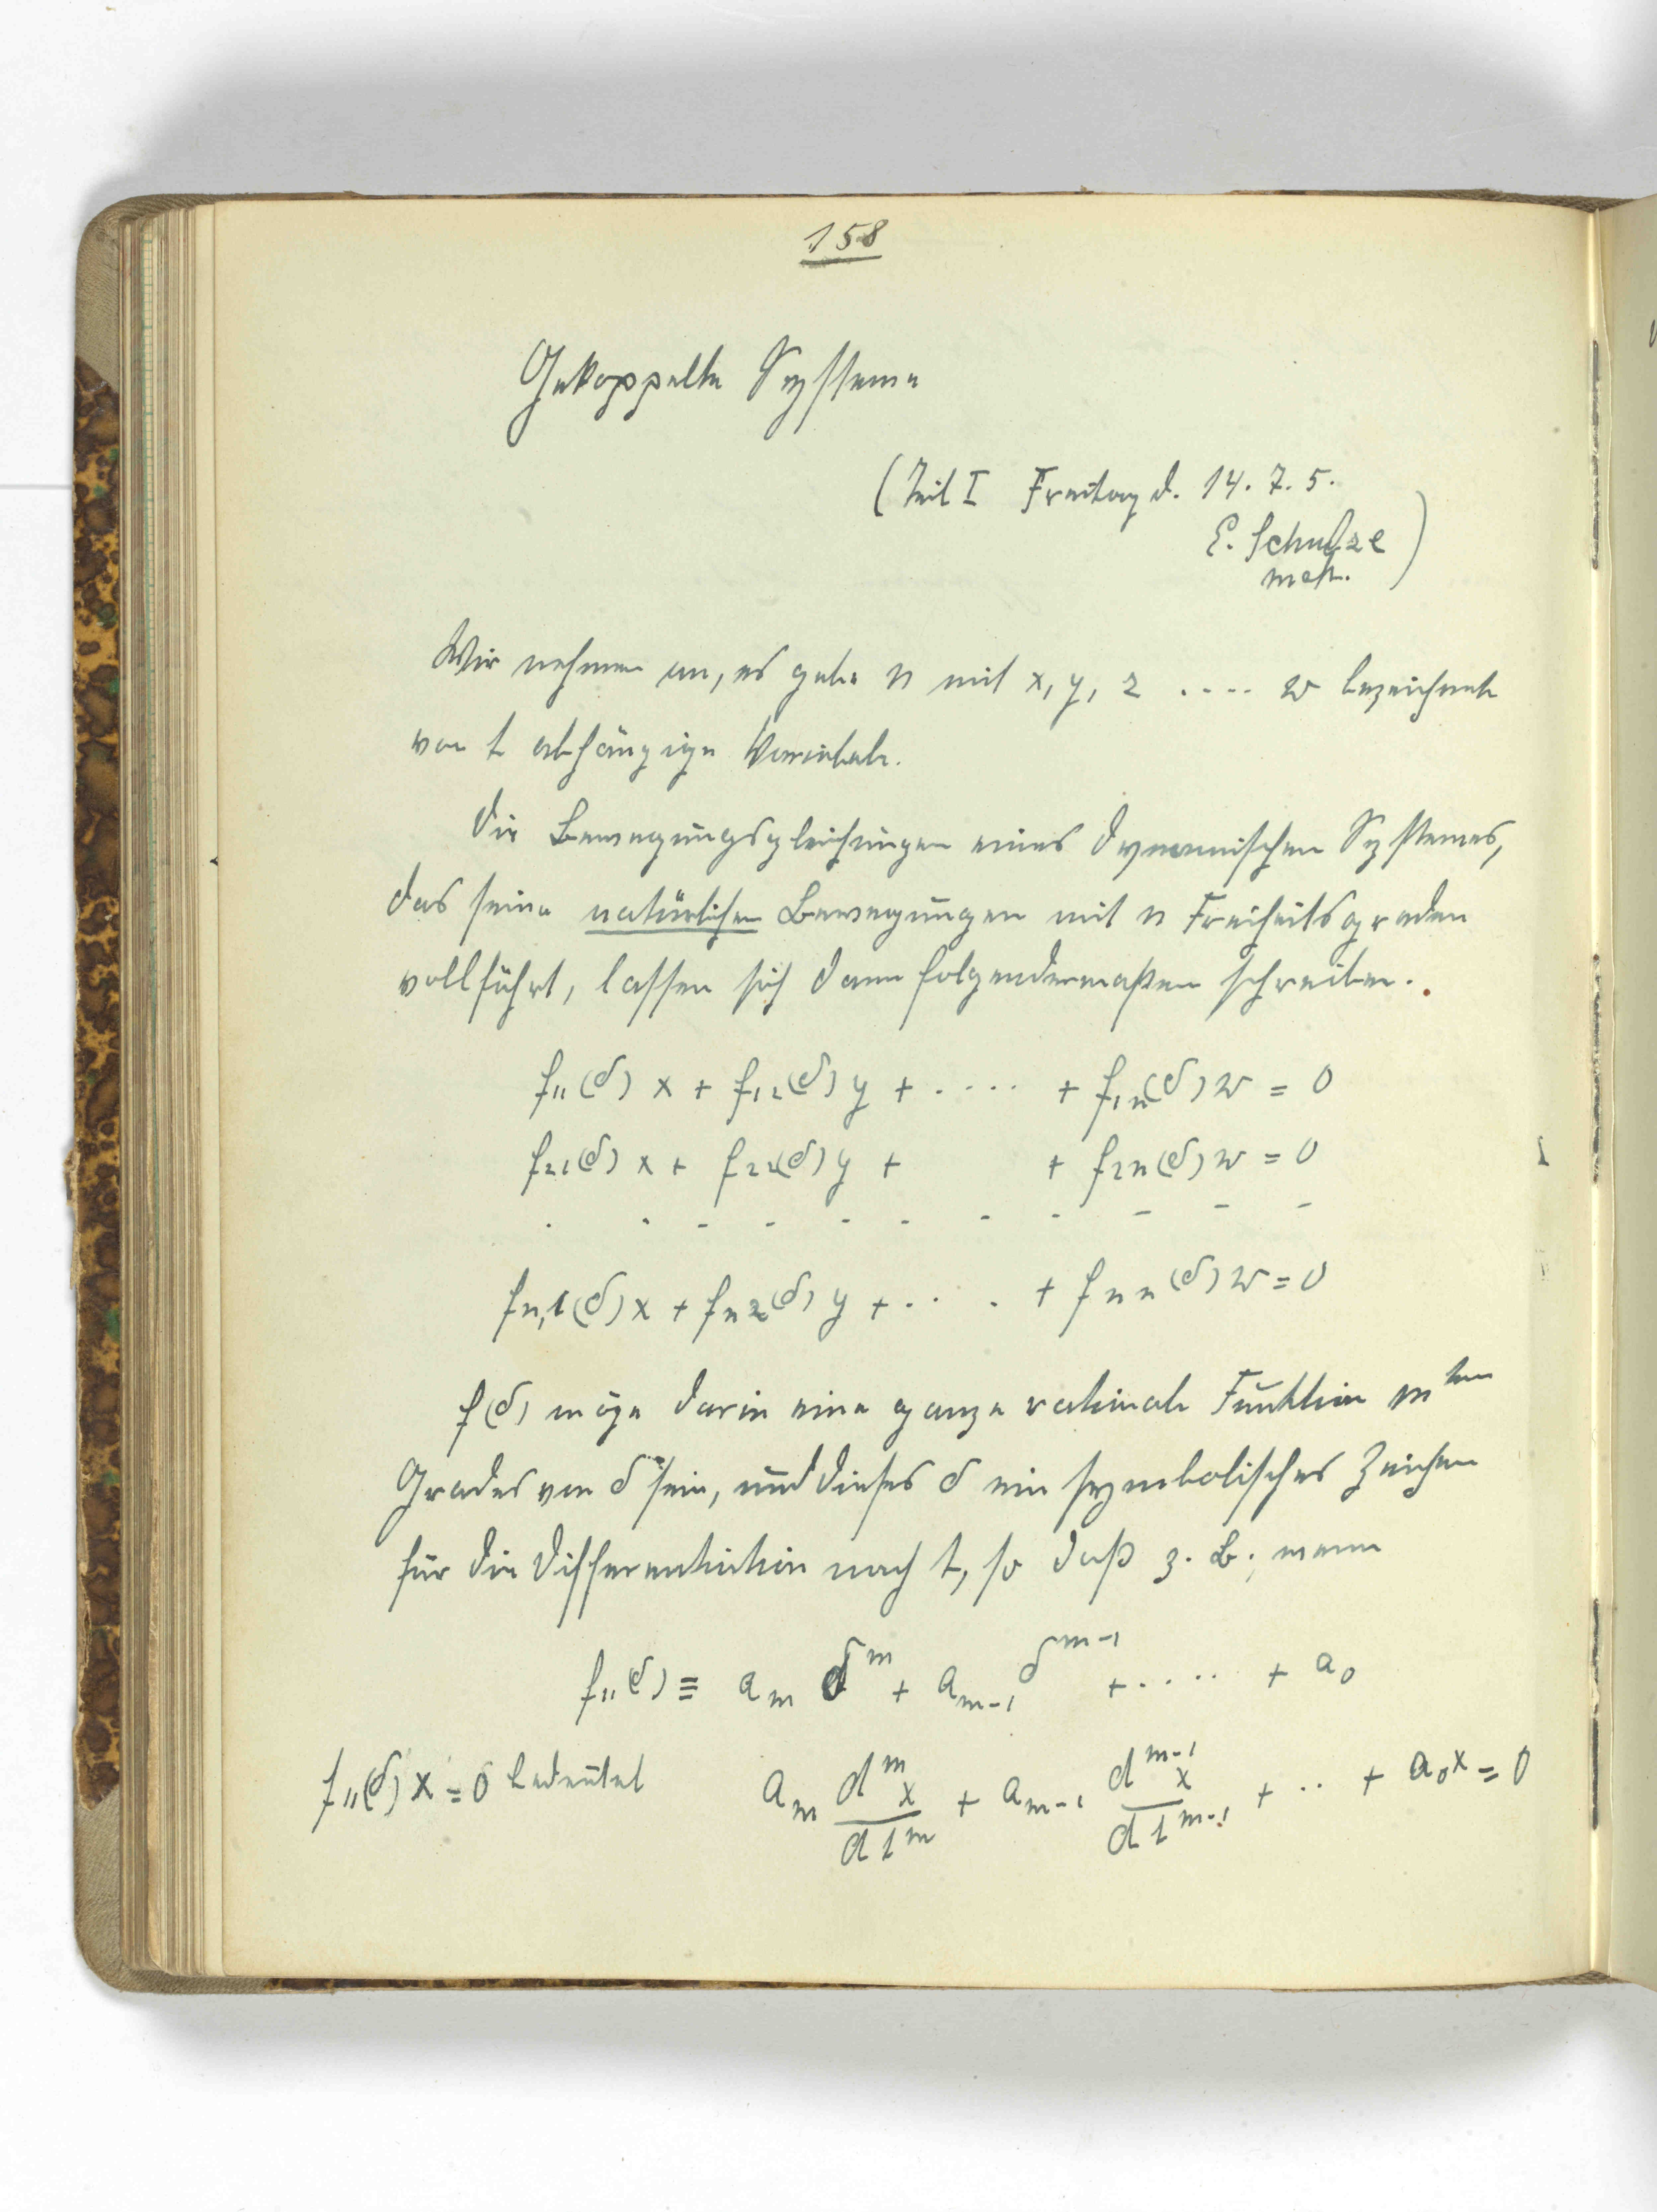 158
Gekoppelte Systeme
(Teil I Freitag d. 14. 7. 5.
E. Schulze )
Wir nehmen an, es gebe n mit x, y, z .... w bezeichnete
von t abhängige Variabele.
Die Bewegungsgleichungen eines dynamischen Systemes,
das seine natürlichen Bewegungen mit n Freiheitsgraden
vollführt, lassen sich dann folgendermaßen schreiben.
f₁₁(δ) x + f₁₂(δ) y + ····· + f₁ₙ(δ) w = 0
f₂₁(δ) x + f₂₂(δ) y + + f₂ₙ(δ) w = 0
. . - - - - - - - - -
fₙ,₁(δ) x + fₙ₂(δ) y + ... . + fₙₙ(δ) w = 0
f(δ) möge darin eine ganze rationale Funktion m^ten
Grades von δ sein, und dieses δ ein symbolisches Zeichen
für die Differentiation nach t, so daß z. B., wenn
f₁₁(δ) ≡ a_m δ^m + a_{m-1} δ^{m-1} + ····· + a₀
f₁₁(δ) x = 0 bedeutet a_m d^m x / dt^m + a_{m-1} d^{m-1} x / dt^{m-1} + ·· + a₀x = 0